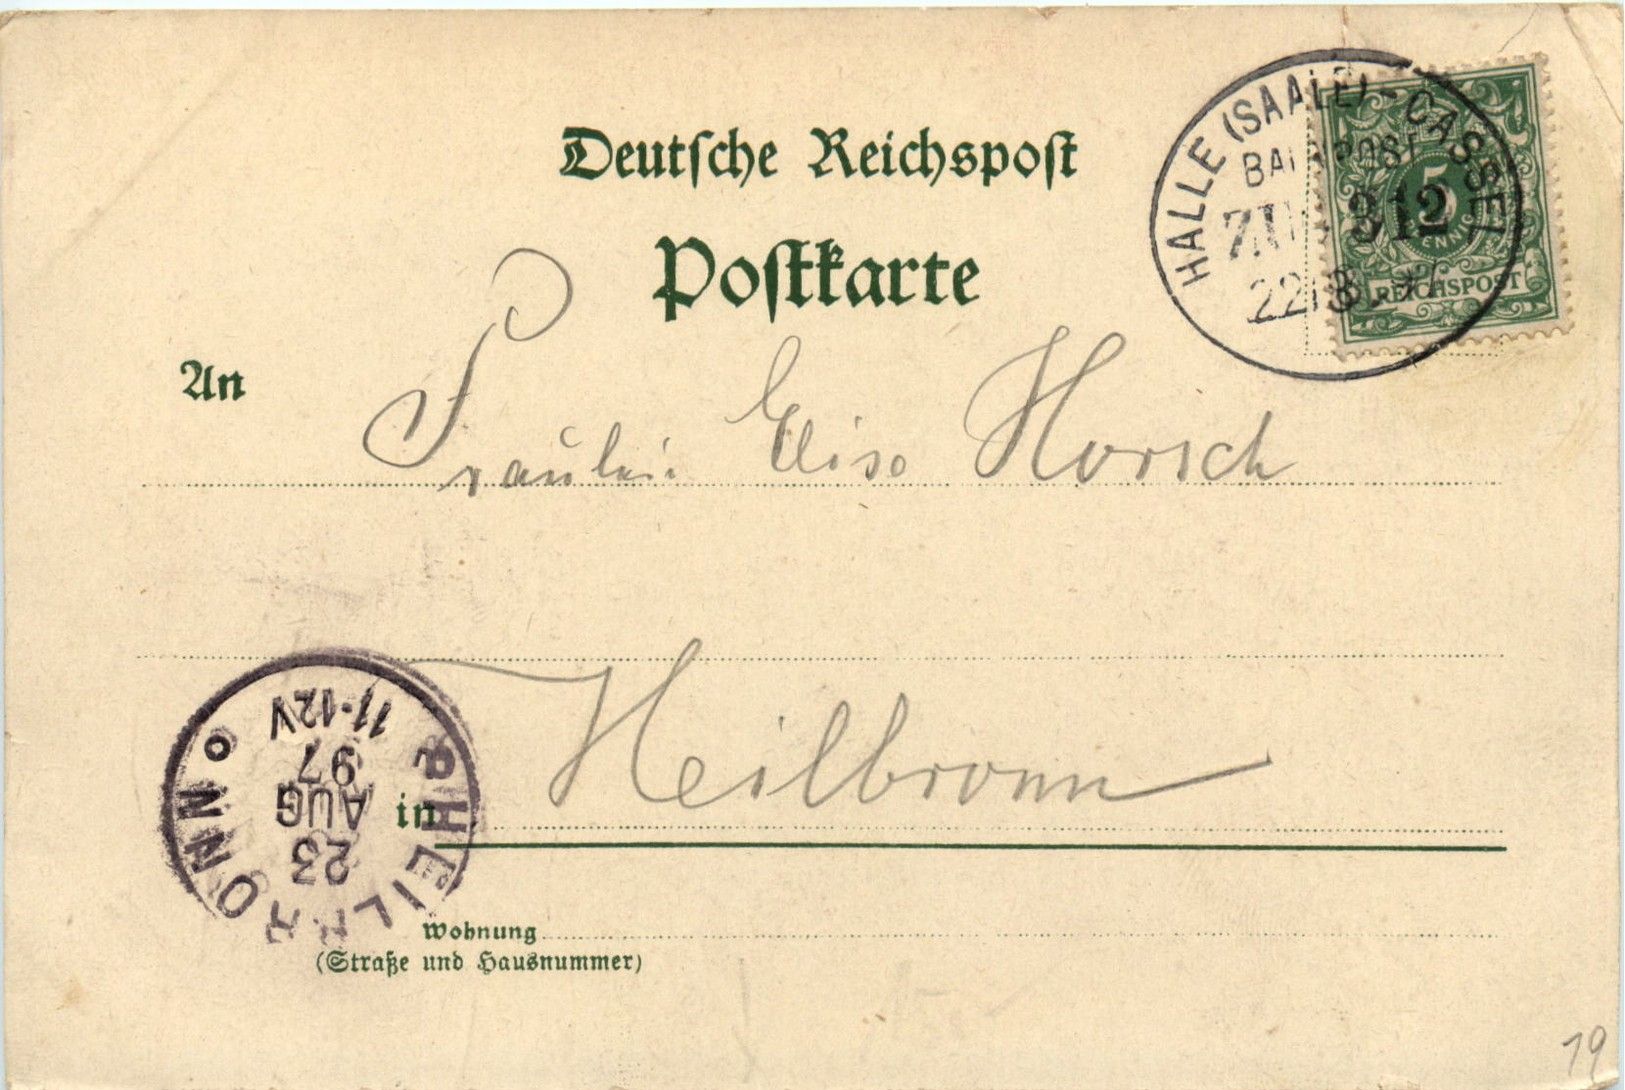 Deutsche Reichspost
Postkarte
HALLE (SAALE) - CASSEL
BAHNPOST
ZUG 312
22 8 97
5
PFENNIG
REICHSPOST
An Fräulein Elise Horsch
Heilbronn
in
HEILBRONN
23
AUG
97
11-12V
Wohnung
(Straße und Hausnummer)
19